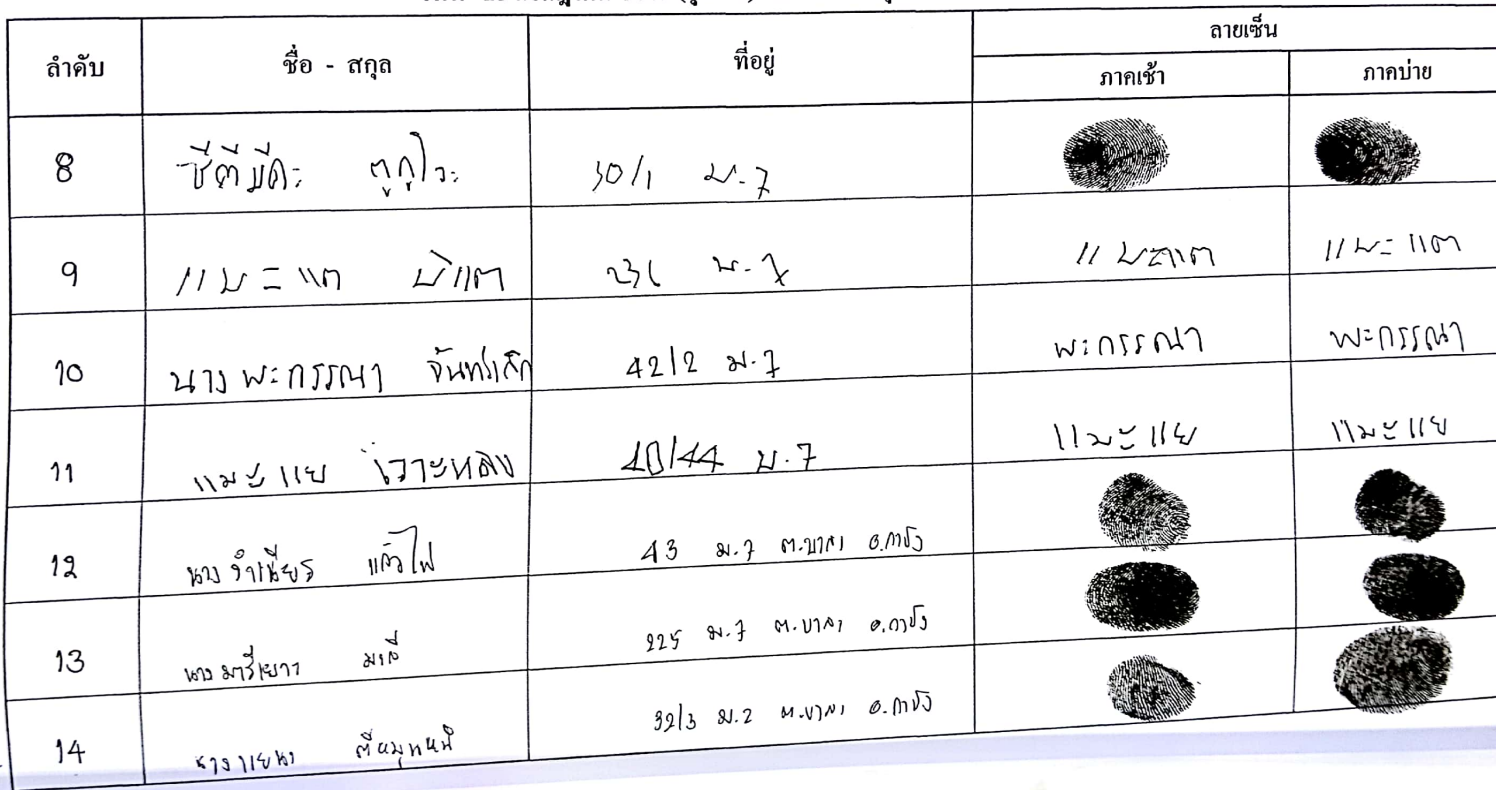 ลำดับ ชื่อ - สกุล ที่อยู่ ลายเซ็น
ภาคเช้า ภาคบ่าย
8 ซีตีมีคะ ตูกูโวะ 30/1 ม.7
9 แมะแต มิแต 236 ม.7 แมะแต แมะแต
10 นางพะกรรณา จันทร์เล็ก 42/2 ม.7 พะกรรณา พะกรรณา
11 แมะแย โวาะหลง 40/44 ม.7 แมะแย แมะแย
12 นางจำเนียร แก้วไฟ 43 ม.7 ต.บาลา อ.กาบัง
13 นางมารีเยาว มะลี 225 ม.7 ต.บาลา อ.กาบัง
14 นางแยนา 32/3 ม.2 ต.บาลา อ.กาบัง